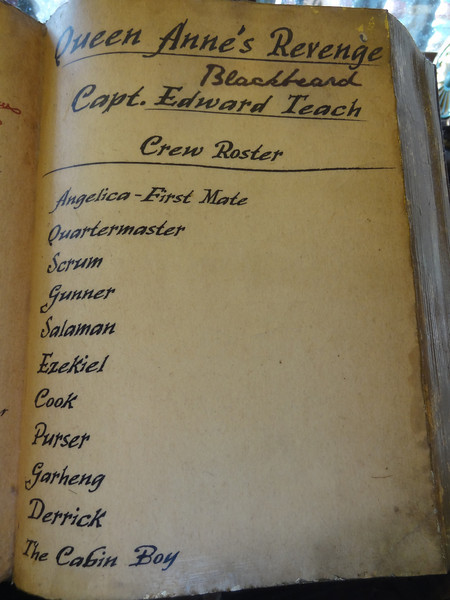 Queen Anne's Revenge
Blackbeard
Capt. Edward Teach
Crew Roster
Angelica - First Mate
Quartermaster
Scrum
Gunner
Salaman
Ezekiel
Cook
Purser
Garheng
Derrick
The Cabin Boy